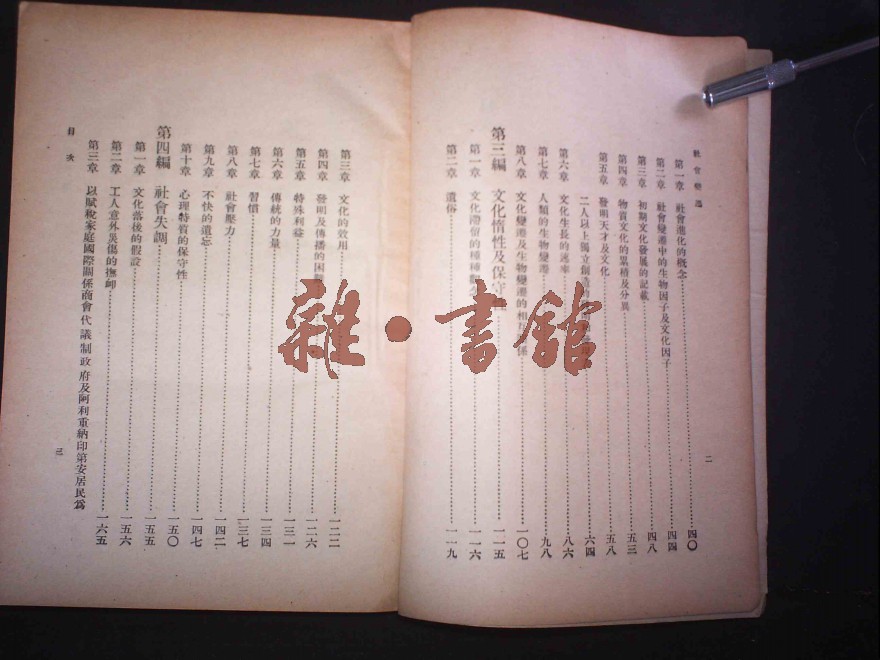 社會變遷
二
第一章 社會進化的概念 四〇
第二章 社會變遷中的生物因子及文化因子 四四
第三章 初期文化發展的記載 四八
第四章 物質文化的累積及分異 五三
第五章 發明天才及文化 五八
二人以上獨立創造 六四
第六章 文化生長的速率 八六
第七章 人類的生物變遷 九八
第八章 文化變遷及生物變遷的相 係 一〇七
第三編 文化惰性及保守 一一五
第一章 文化滯留的種種 一一六
第二章 遺俗 一一九
第三章 文化的效用 一二二
第四章 發明及傳播的困 一二六
第五章 特殊利益 一三一
第六章 傳統的力量 一三四
第七章 習慣 一三七
第八章 社會壓力 一四二
第九章 不快的遺忘 一四七
第十章 心理特質的保守性 一五〇
第四編 社會失調 一五五
第一章 文化落後的假設 一五五
第二章 工人意外災傷的撫卹 一五六
第三章 以賦稅家庭國際關係商會代議制政府及阿利重納印第安居民爲 一六五
目次
三
雜·書館